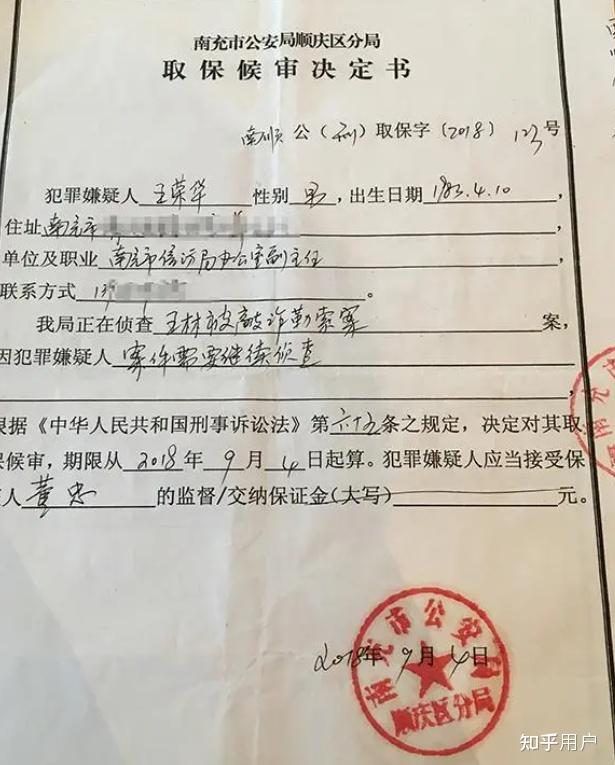 南充市公安局顺庆区分局
取保候审决定书
南顺公(刑)取保字〔2018〕123号
犯罪嫌疑人 王荣华 性别 男,出生日期 1983.4.10,
住址 南充市
单位及职业 南充市信访局办公室副主任
联系方式 13
我局正在侦查 王林被敲诈勒索案 案,
因犯罪嫌疑人 案件需要继续侦查
根据《中华人民共和国刑事诉讼法》第六十五条之规定,决定对其取
保候审,期限从2018年9月4日起算。犯罪嫌疑人应当接受保
证人 董忠 的监督/交纳保证金(大写) 元。
2018年9月4日
南充市公安局
顺庆区分局
知乎用户